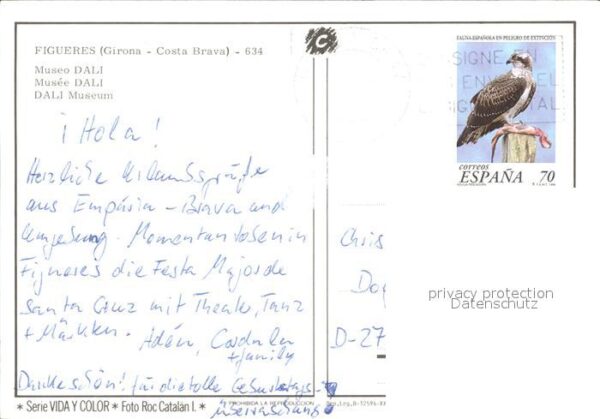 FIGUERES (Girona - Costa Brava) - 634
Museo DALI
Musée DALI
DALI Museum
¡Hola!
Herzliche Urlaubsgrüße
aus Empúria-Brava und
Umgebung. Momentan tosen in
Figueres die Festa Major de
Santa Cruz mit Theater, Tanz
+ Märkten. Adéu,
+ family
Dankeschön! für die tolle Geburtstags-
überraschung
* Serie VIDA Y COLOR * Foto Roc Catalán I. *
PROHIBIDA LA REPRODUCCION
FAUNA ESPAÑOLA EN PELIGRO DE EXTINCIÓN
correos
ESPAÑA 70
Chris
D-27
privacy protection
Datenschutz